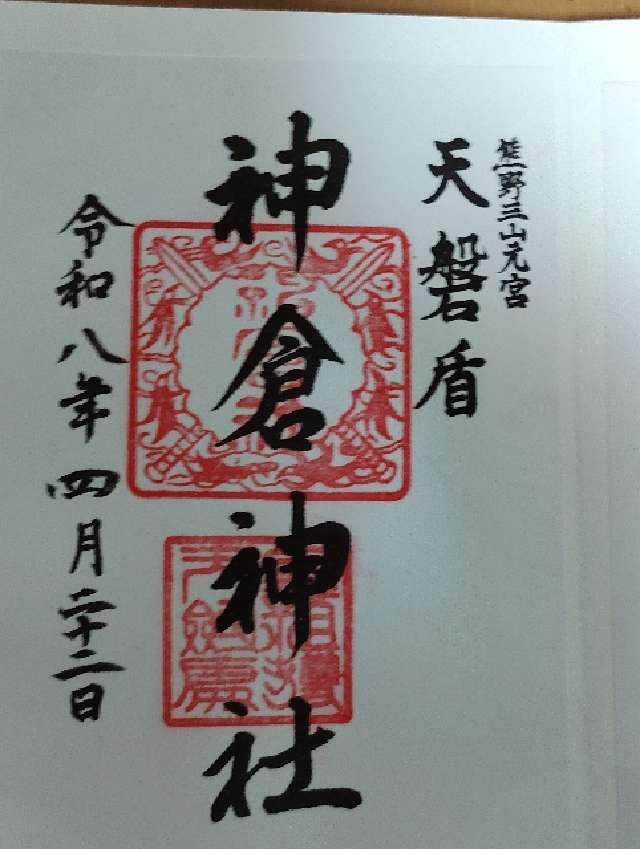 熊野三山元宮
天磐盾
神倉神社
令和八年四月二十二日